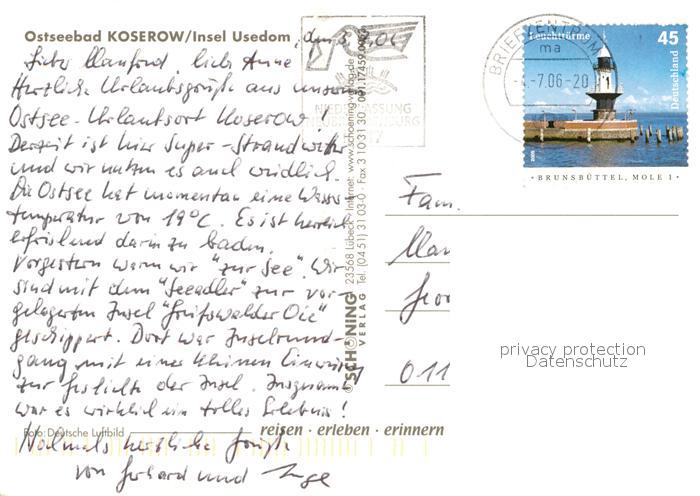 Ostseebad KOSEROW/Insel Usedom, den 3.
Liebe Manfred liebe Anne
Herzliche Urlaubsgrüße aus unserem
Ostsee-Urlaubsort Koserow.
Derzeit ist hier Super-Strandwetter
und wir nutzen es auch weidlich.
Die Ostsee hat momentan eine Wasser
temperatur von 19°C. Es ist herrlich
erfrischend darin zu baden.
Vorgestern waren wir "zur See". Wir
sind mit dem "Seeadler" zur vor-
gelagerten Insel "Greifswalder Oie"
geschippert. Dort war Inselrund-
gang mit einer kleinen Einweisung
zur Geschichte der Insel. Insgesamt
war es wirklich ein tolles Erlebnis!
Foto: Deutsche Luftbild
reisen · erleben · erinnern
Nochmals herzliche Grüße
von Gerhard und Inge
SCHÖNING VERLAG
23568 Lübeck · Internet: www.schoening-verlag.de
Tel. (0451) 31 03-0 · Fax 3 10 31 30
NIEDERLASSUNG
BRIEFZENTRUM
ma
-4.-7.06-20
Leuchttürme 45
Deutschland
2005
· BRUNSBÜTTEL, MOLE 1 ·
Fam.
Man
011
privacy protection
Datenschutz